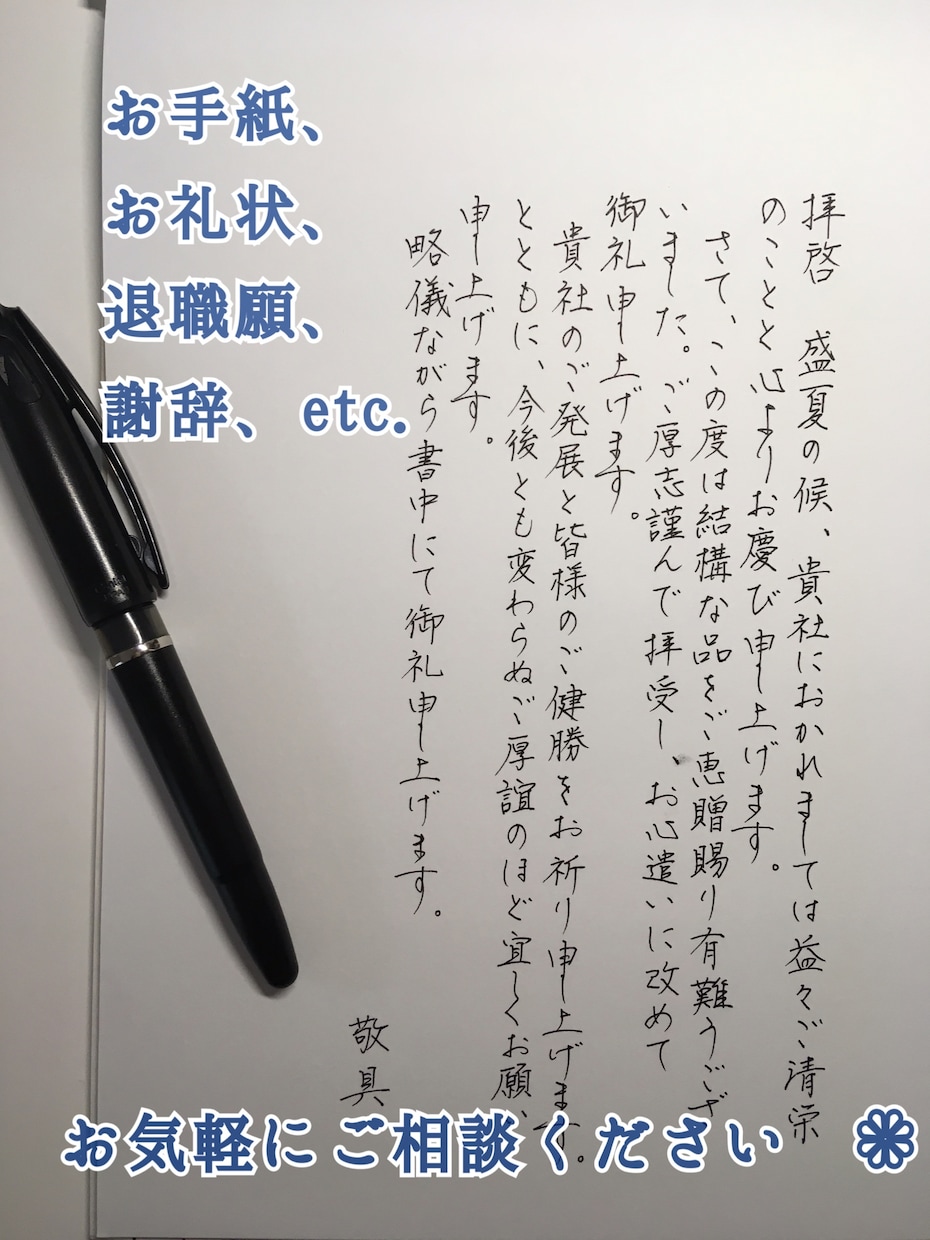 お手紙、
お礼状、
退職願、
謝辞、etc.
拝啓　盛夏の候、貴社におかれましては益々ご清栄
のことと心よりお慶び申し上げます。
さて、この度は結構な品をご恵贈賜り有難うござ
いました。ご厚志謹んで拝受し、お心遣いに改めて
御礼申し上げます。
貴社のご発展と皆様のご健勝をお祈り申し上げます。
とともに、今後とも変わらぬご厚誼のほど宜しくお願い
申し上げます。
略儀ながら書中にて御礼申し上げます。
敬具
お気軽にご相談ください